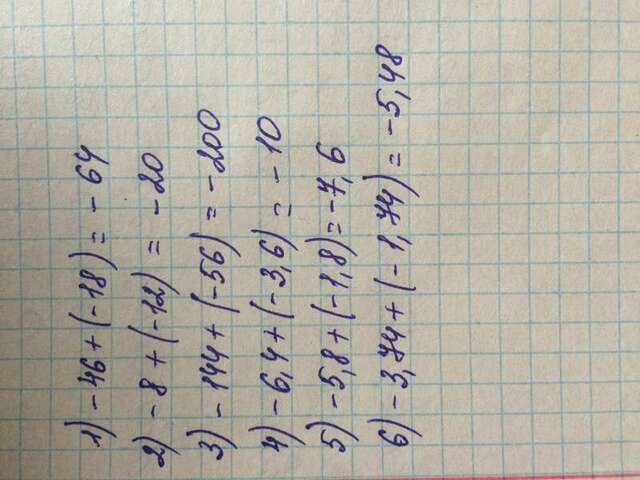 1) -46+(-18) = -64
2) -8+(-12) = -20
3) -144+(-56) = -200
4) -6,4+(-3,6) = -10
5) -5,8+(-1,8)=-7,6
6) -3,74+(-1,74)=-5,48